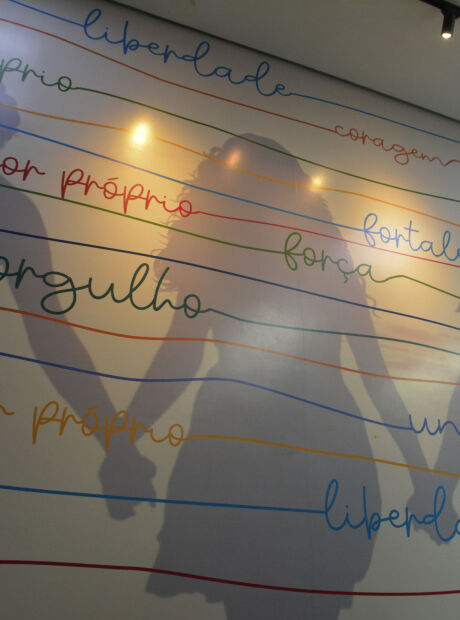 liberdade
prio
coragem
or próprio
fortale
força
orgulho
un
próprio
liberda